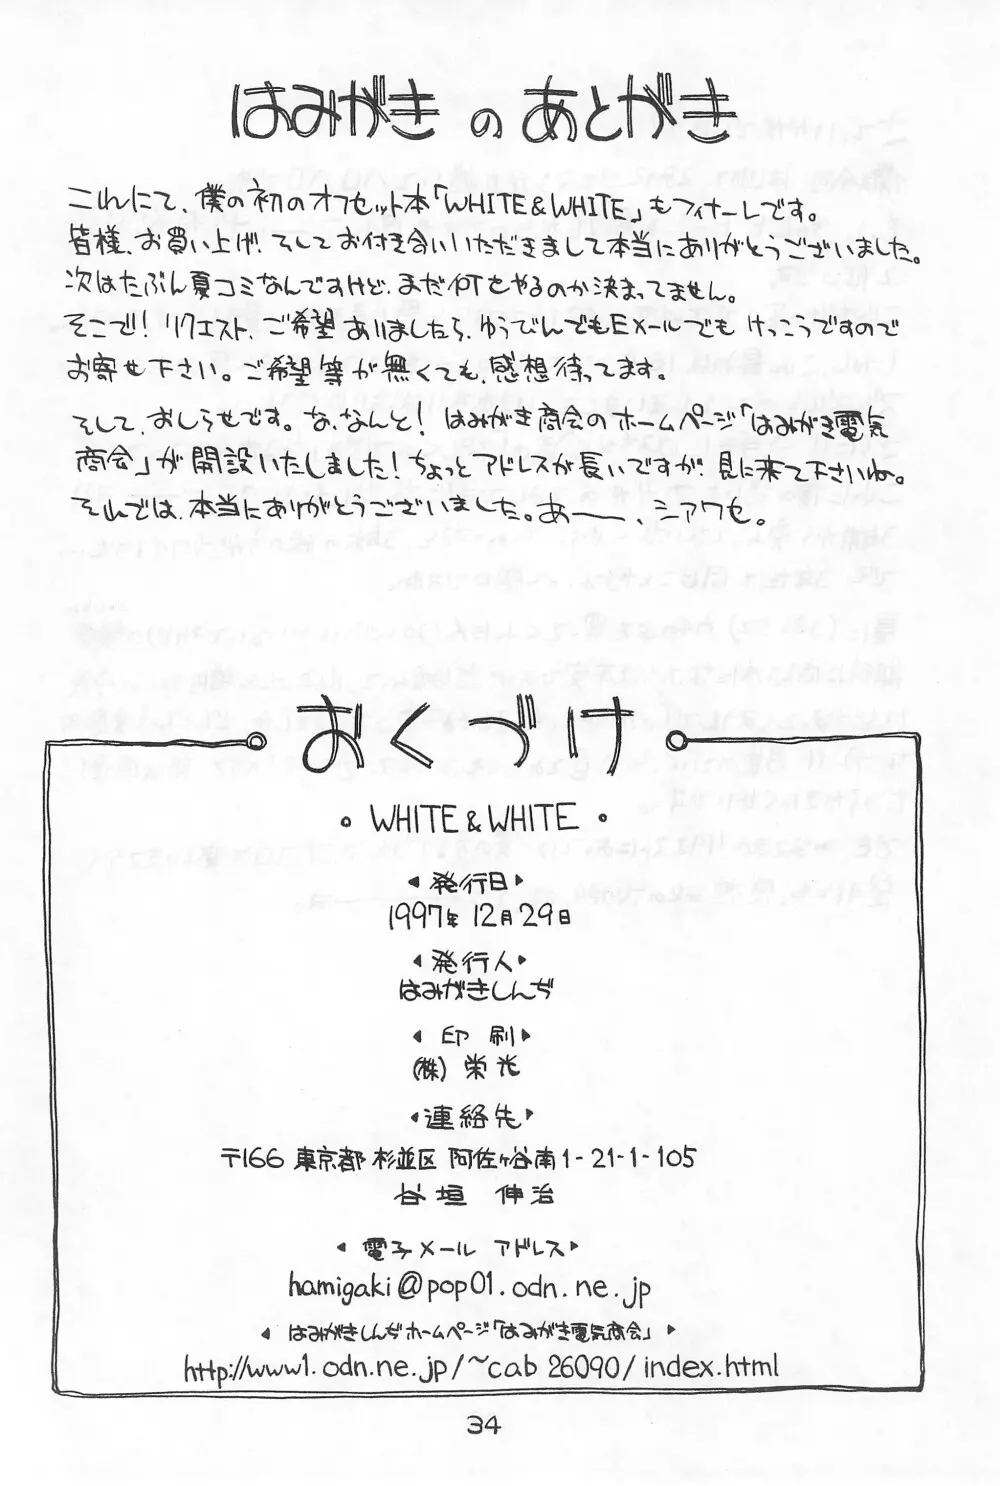 はみがき の あとがき
これにて、僕の初のオフセット本「WHITE&WHITE」もフィナーレです。
皆様、お買い上げ、そしてお付き合いいただきまして本当にありがとうございました。
次はたぶん夏コミなんですけど、まだ何をやるのか決まってません。
そこで!リクエスト、ご希望ありましたら、ゆうびんでもEメールでもけっこうですので
お寄せ下さい。ご希望等が無くても、感想待ってます。
そして、おしらせです。な、なんと!はみがき商会のホームページ「はみがき電気
商会」が開設いたしました!ちょっとアドレスが長いですが、見に来て下さいね。
それでは、本当にありがとうございました。あー、シアワセ。
おくづけ
。WHITE&WHITE。
◀発行日▶
1997年12月29日
◀発行人▶
はみがきしんぢ
◀印刷▶
(株)栄光
◀連絡先▶
〒166 東京都 杉並区 阿佐ヶ谷南1-21-1-105
谷垣 伸治
◀電子メール アドレス▶
hamigaki@pop01.odn.ne.jp
◀はみがきしんぢホームページ「はみがき電気商会」▶
http://www1.odn.ne.jp/~cab26090/index.html
34